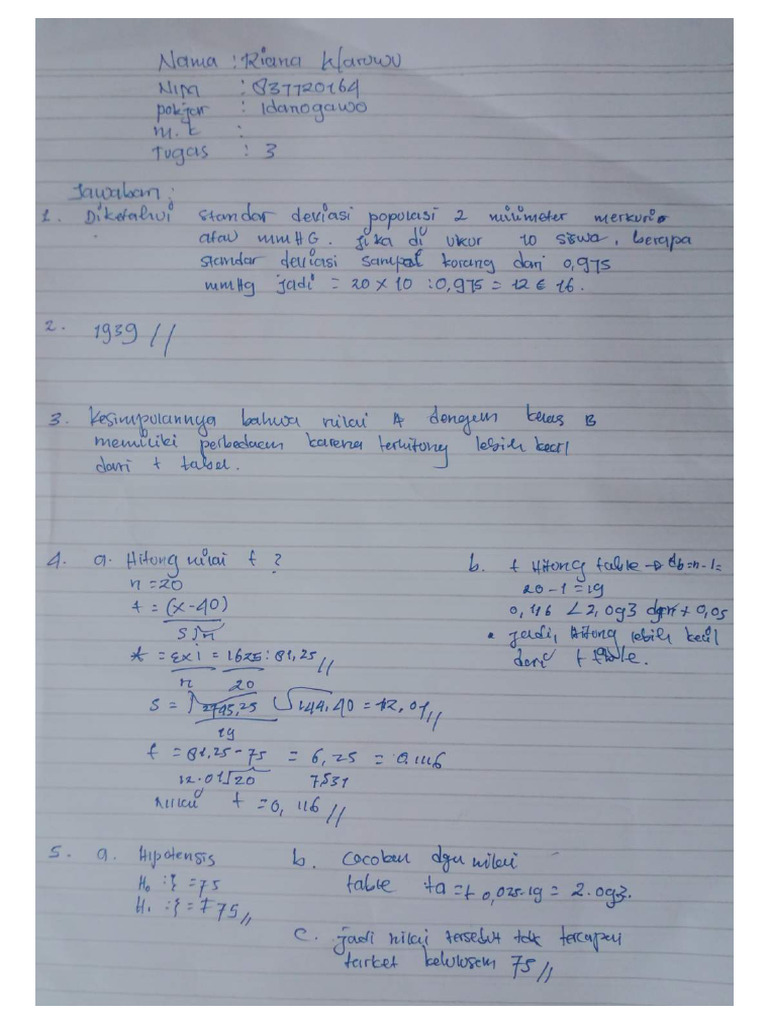 Nama : Riana Waruwu
Nim : 837720164
pokjar : Idanogawo
m.k :
Tugas : 3
Jawaban ;
1. Diketahui standar deviasi populasi 2 milimeter merkurio
atau mmHG. jika di ukur 10 siswa, berapa
standar deviasi sampel korang dari 0,975
mmHg jadi = 20 x 10 : 0,975 = 12 € 16.
2. 1939 //
3. Kesimpulannya bahwa nilai A dengan kelas B
memiliki perbedaan karena terhitong lebih kecil
dari t tabel.
4. a. Hitong nilai t ?
n = 20
t = (x - 40)
s√n
x = Exi = 1625 : 81,25 //
n 20
s = √2745,25 √144,40 = 12,01 //
19
t = 81,25 - 75 = 6,25 = 0,116
12.01√20 7531
nilai t = 0,116 //
b. t Hitong table → db = n-1 =
20 - 1 = 19
0,116 < 2,093 dgn t 0,05
• jadi, Hitong lebih kecil
dari t table.
5. a. Hipotensis
H₀ : } = 75
H₁ : } = ≠ 75 //
b. Cocokan dgn nilai
table ta = t 0,025.19 = 2.093.
c. jadi nilai tersebut tdk tercapai
tarket kelulusan 75 //